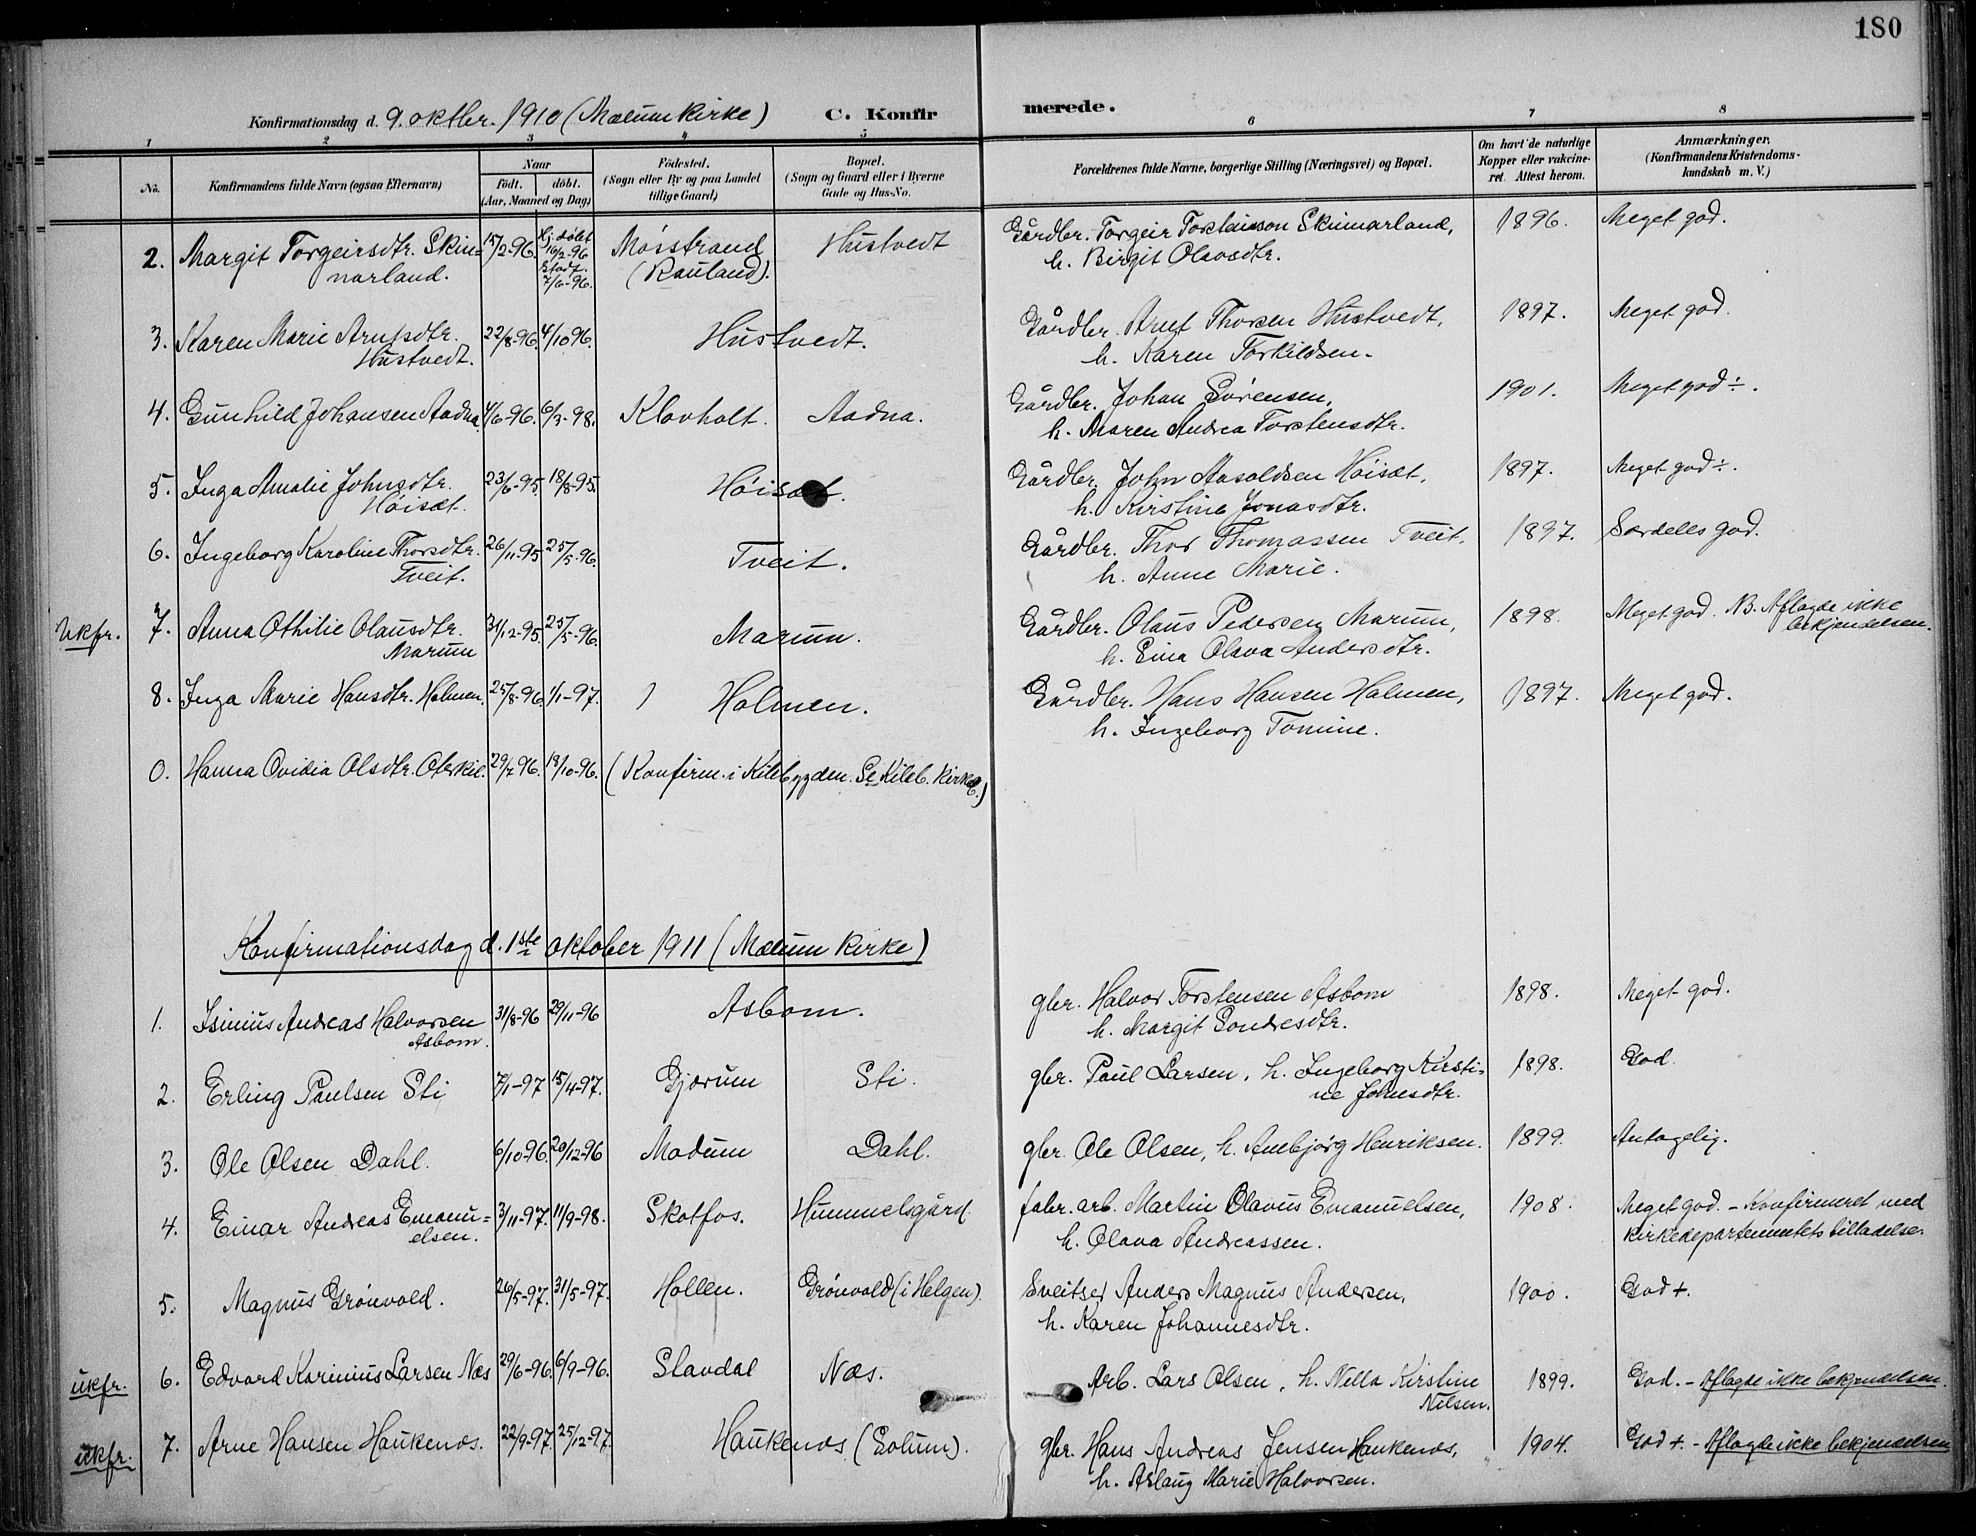 180
Konfirmationsdag d. 9. oktbr. 1910 (Mælum kirke) C. Konfirmerede.
1 2 3 4 5 6 7 8
No.
Konfirmandens fulde Navn (ogsaa Efternavn)
Naar
født. døbt.
(Aar, Maaned og Dag)
Fødested.
(Sogn eller By og paa Landet
tillige Gaard)
Bopæl.
(Sogn og Gaard eller i Byerne
Gade og Hus-No.
Forældrenes fulde Navne, borgerlige Stilling (Næringsvei) og Bopæl.
Om havt de naturlige
Kopper eller vakcine-
ret. Attest herom.
Anmærkninger.
(Konfirmandens Kristendoms-
kundskab m. V.)
2. Margit Torgeirsdtr. Skin=
narland.
15/2-96. Hj. døbt
16/2-96
Stadf.
7/6-96.
Møsstrand
(Rauland).
Hustvedt
Gårdbr. Torgeir Torsteinson Skinnarland,
h. Birgit Olavsdtr.
1896. Meget god.
3. Karen Marie Arntsdtr.
Hustvedt.
22/8-96. 4/10 96. Hustvedt.
Gårdbr. Arnt Thorsen Hustvedt,
h. Karen Torkildsen.
1897. Meget god.
4. Gunhild Johansen Aadna. 4/6-96. 6/3-98. Klovholt. Aadna.
Gårdbr. Johan Sørensen,
h. Maren Andrea Torstensdtr.
1901. Meget god ÷.
5. Inga Amalie Johnsdtr.
Høisæt.
23/6-95. 18/8-95. Høisæt.
Gårdbr. John Aasoldsen Høisæt,
h. Kirstine Jonasdtr.
1897. Meget god ÷.
6. Ingeborg Karoline Thorsdtr.
Tveit.
26/11-95 25/5-96. Tveit.
Gårdbr. Thor Thomassen Tveit.
h. Anne Marie.
1897. Særdeles god.
Ukfr. 7. Anna Othilie Olausdtr.
Marum
31/12-95. 25/5-96. Marum.
Gårdbr. Olaus Pedersen Marum,
h. Eina Olava Andersdtr.
1898. Meget god. NB. Aflagde ikke
bekjendelsen.
8. Inga Marie Hansdtr. Holmen. 25/8-96. 1/1-97. Holmen.
Gårdbr. Hans Hansen Holmen,
h. Ingeborg Tomine.
1897. Meget god.
0. Hanna Ovidia Olsdtr. 29/7 96. 18/10-96. (Konfirm. i Kilebygden. Se Kileb. kirke.)
Konfirmationsdag d. 1ste oktober 1911 (Mælum kirke)
1. Isinius Andreas Halvorsen
Asbom.
31/8-96 29/11-96 Asbom.
gbr. Halvor Torstensen Asbom
h. Margit Sondresdtr.
1898. Meget god.
2. Erling Paulsen Sti 7/1-97 15/4-97. Gjerum Sti.
gbr. Paul Larsen, h. Ingeborg Kirsti=
ne Johnsdtr.
1898. God
3. Ole Olsen Dahl. 6/10-96. 20/12-96 Modum Dahl.
gbr. Ole Olsen, h. Anbjørg Henriksen. 1899. Antagelig.
4. Einar Andreas Emanu=
elsen.
3/11-97. 11/9-98. Skotfos. Hummelsgård.
fabr. arb. Martin Olavus Emanuelsen,
h. Olava Andreassen.
1908. Meget god. – Konfirmeret med
kirkedepartementets tilladelse.
5. Magnus Grönvold. 26/5-97. 31/5-97. Hollen. Grönvold (i Helgen).
Sveitser Anders Magnus Andersen,
h. Karen Johannesdtr.
1900. God +.
ukfr. 6. Edvard Karinius Larsen Næs 29/6-96. 6/9-96. Slavdal Næs.
Arb. Lars Olsen, h. Nella Kirstine
Nilsen.
1899. God. – Aflagde ikke bekjendelsen.
ukfr. 7. Arne Hansen Haukenæs. 22/9-97. 25/12-97. Haukenæs (Solum).
gbr. Hans Andreas Jensen Haukenæs,
h. Aslaug Marie Halvorsen.
1904. God +. – Aflagde ikke bekjendelsen